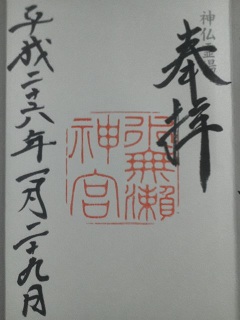 神仏霊場
奉拝
水無瀬
神宮
平成二十六年一月二十九日